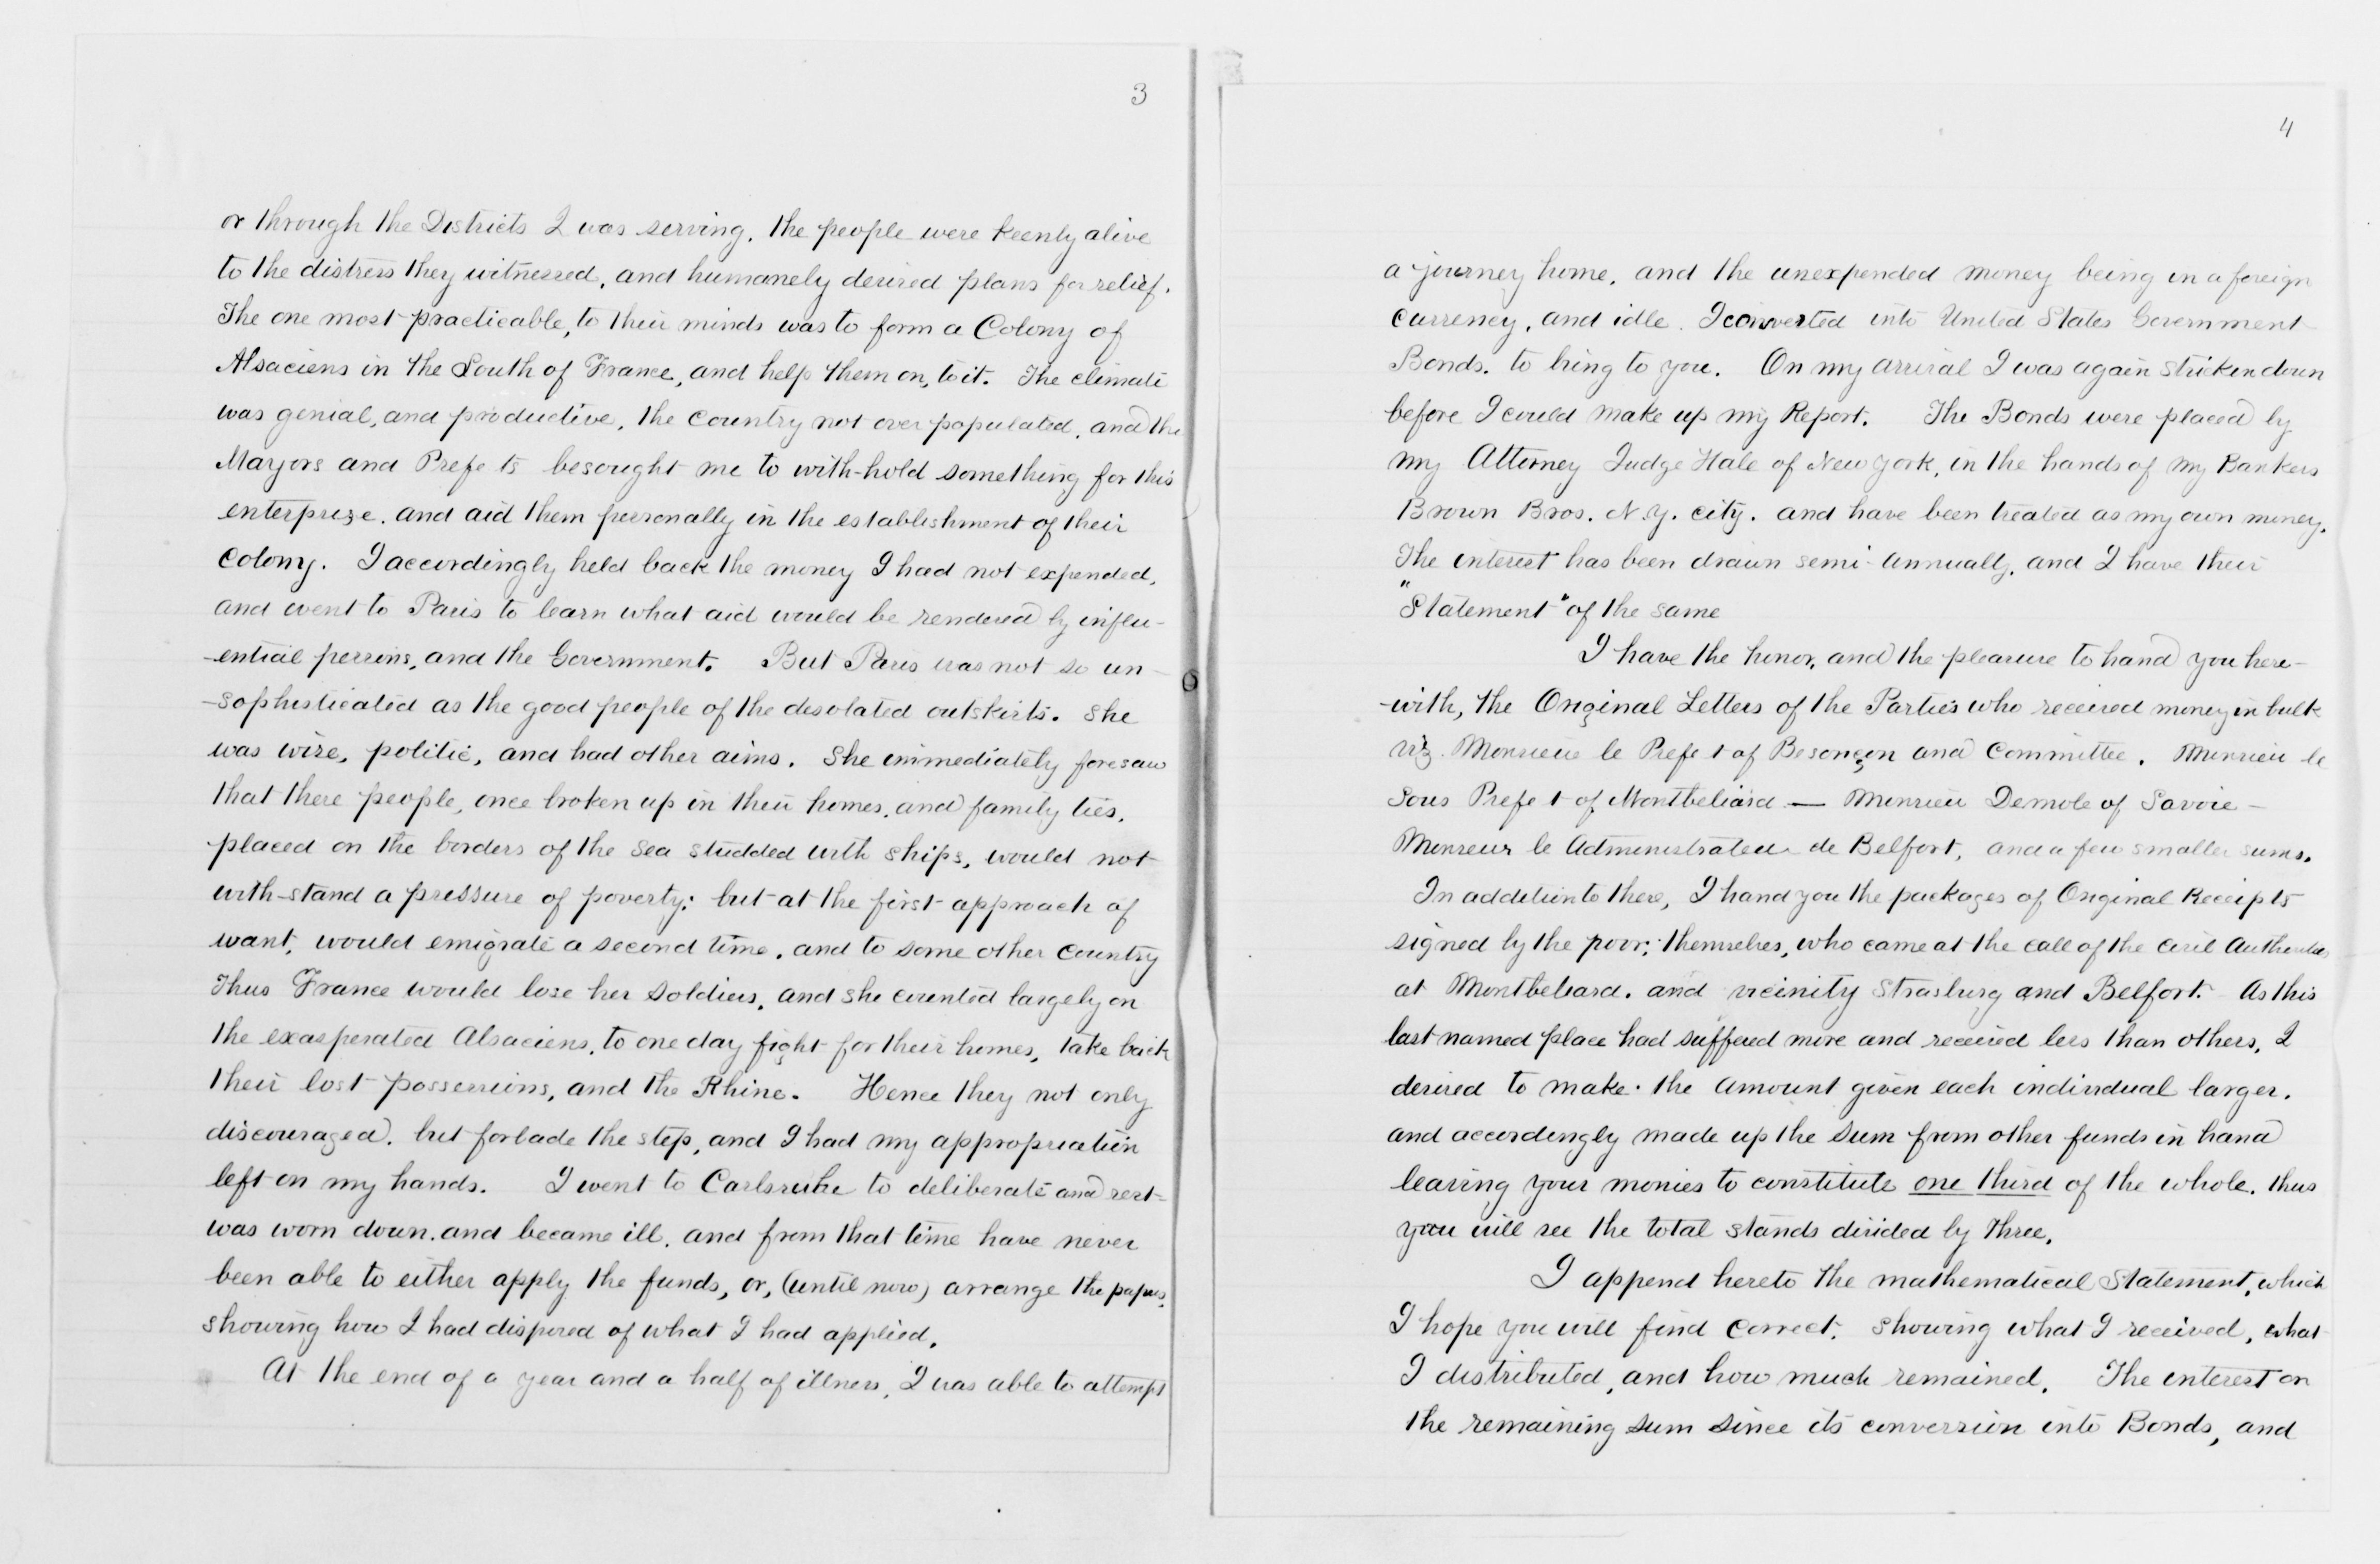 3
or through the Districts I was serving. the people were keenly alive
to the distress they witnessed, and humanely desired plans for relief.
The one most practicable, to their minds was to form a Colony of
Alsaciens in the South of France, and help them on, to it. The climate
was genial, and productive, the country not over populated, and the
Mayors and Prefets besought me to with-hold something for this
enterprize. and aid them personally in the establishment of their
Colony. I accordingly held back the money I had not expended,
and went to Paris to learn what aid would be rendered by influ-
-ential persons, and the Government. But Paris was not so un-
-sophisticated as the good people of the desolated outskirts. She
was wise, politic, and had other aims. She immediately foresaw
that these people, once broken up in their homes, and family ties,
placed on the borders of the sea studded with ships, would not
with-stand a pressure of poverty; but at the first approach of
want, would emigrate a second time, and to some other country
Thus France would lose her soldiers, and she counted largely on
the exasperated Alsaciens, to one day fight for their homes, take back
their lost possessions, and the Rhine. Hence they not only
discouraged. but forbade the step, and I had my appropriation
left on my hands. I went to Carlsruhe to deliberate and rest-
was worn down. and became ill. and from that time have never
been able to either apply the funds, or, (until now) arrange the papers,
showing how I had disposed of what I had applied.
At the end of a year and a half of illness, I was able to attempt
4
a journey home, and the unexpended money being in a foreign
currency, and idle. I converted into United States Government
Bonds. to bring to you. On my arrival I was again stricken down
before I could make up my Report. The Bonds were placed by
my Attorney Judge Hale of New York, in the hands of my Bankers
Brown Bros. N.Y. city. and have been treated as my own money.
The interest has been drawn semi-annually, and I have their
"Statement" of the same
I have the honor, and the pleasure to hand you here-
-with, the Original Letters of the Parties who received money in bulk
viz. Monsieur le Prefet of Besonçon and Committee. Monsieu le
Sous Prefet of Montbeliard — Monsieu Demole of Savoie -
Monsieur le Administrateu de Belfort, and a few smaller sums.
In addition to these, I hand you the packages of Original Receipts
signed by the poor; themselves, who came at the call of the civil Authorities
at Montbeliard. and vicinity Strasburg and Belfort. As this
last named place had suffered more and received less than others, I
desired to make the amount given each individual larger.
and accordingly made up the sum from other funds in hand
leaving your monies to constitute one third of the whole. thus
you will see the total stands divided by three.
I append hereto the mathematical Statement, which
I hope you will find correct. showing what I received, what
I distributed, and how much remained. The interest on
the remaining sum since its conversion into Bonds, and